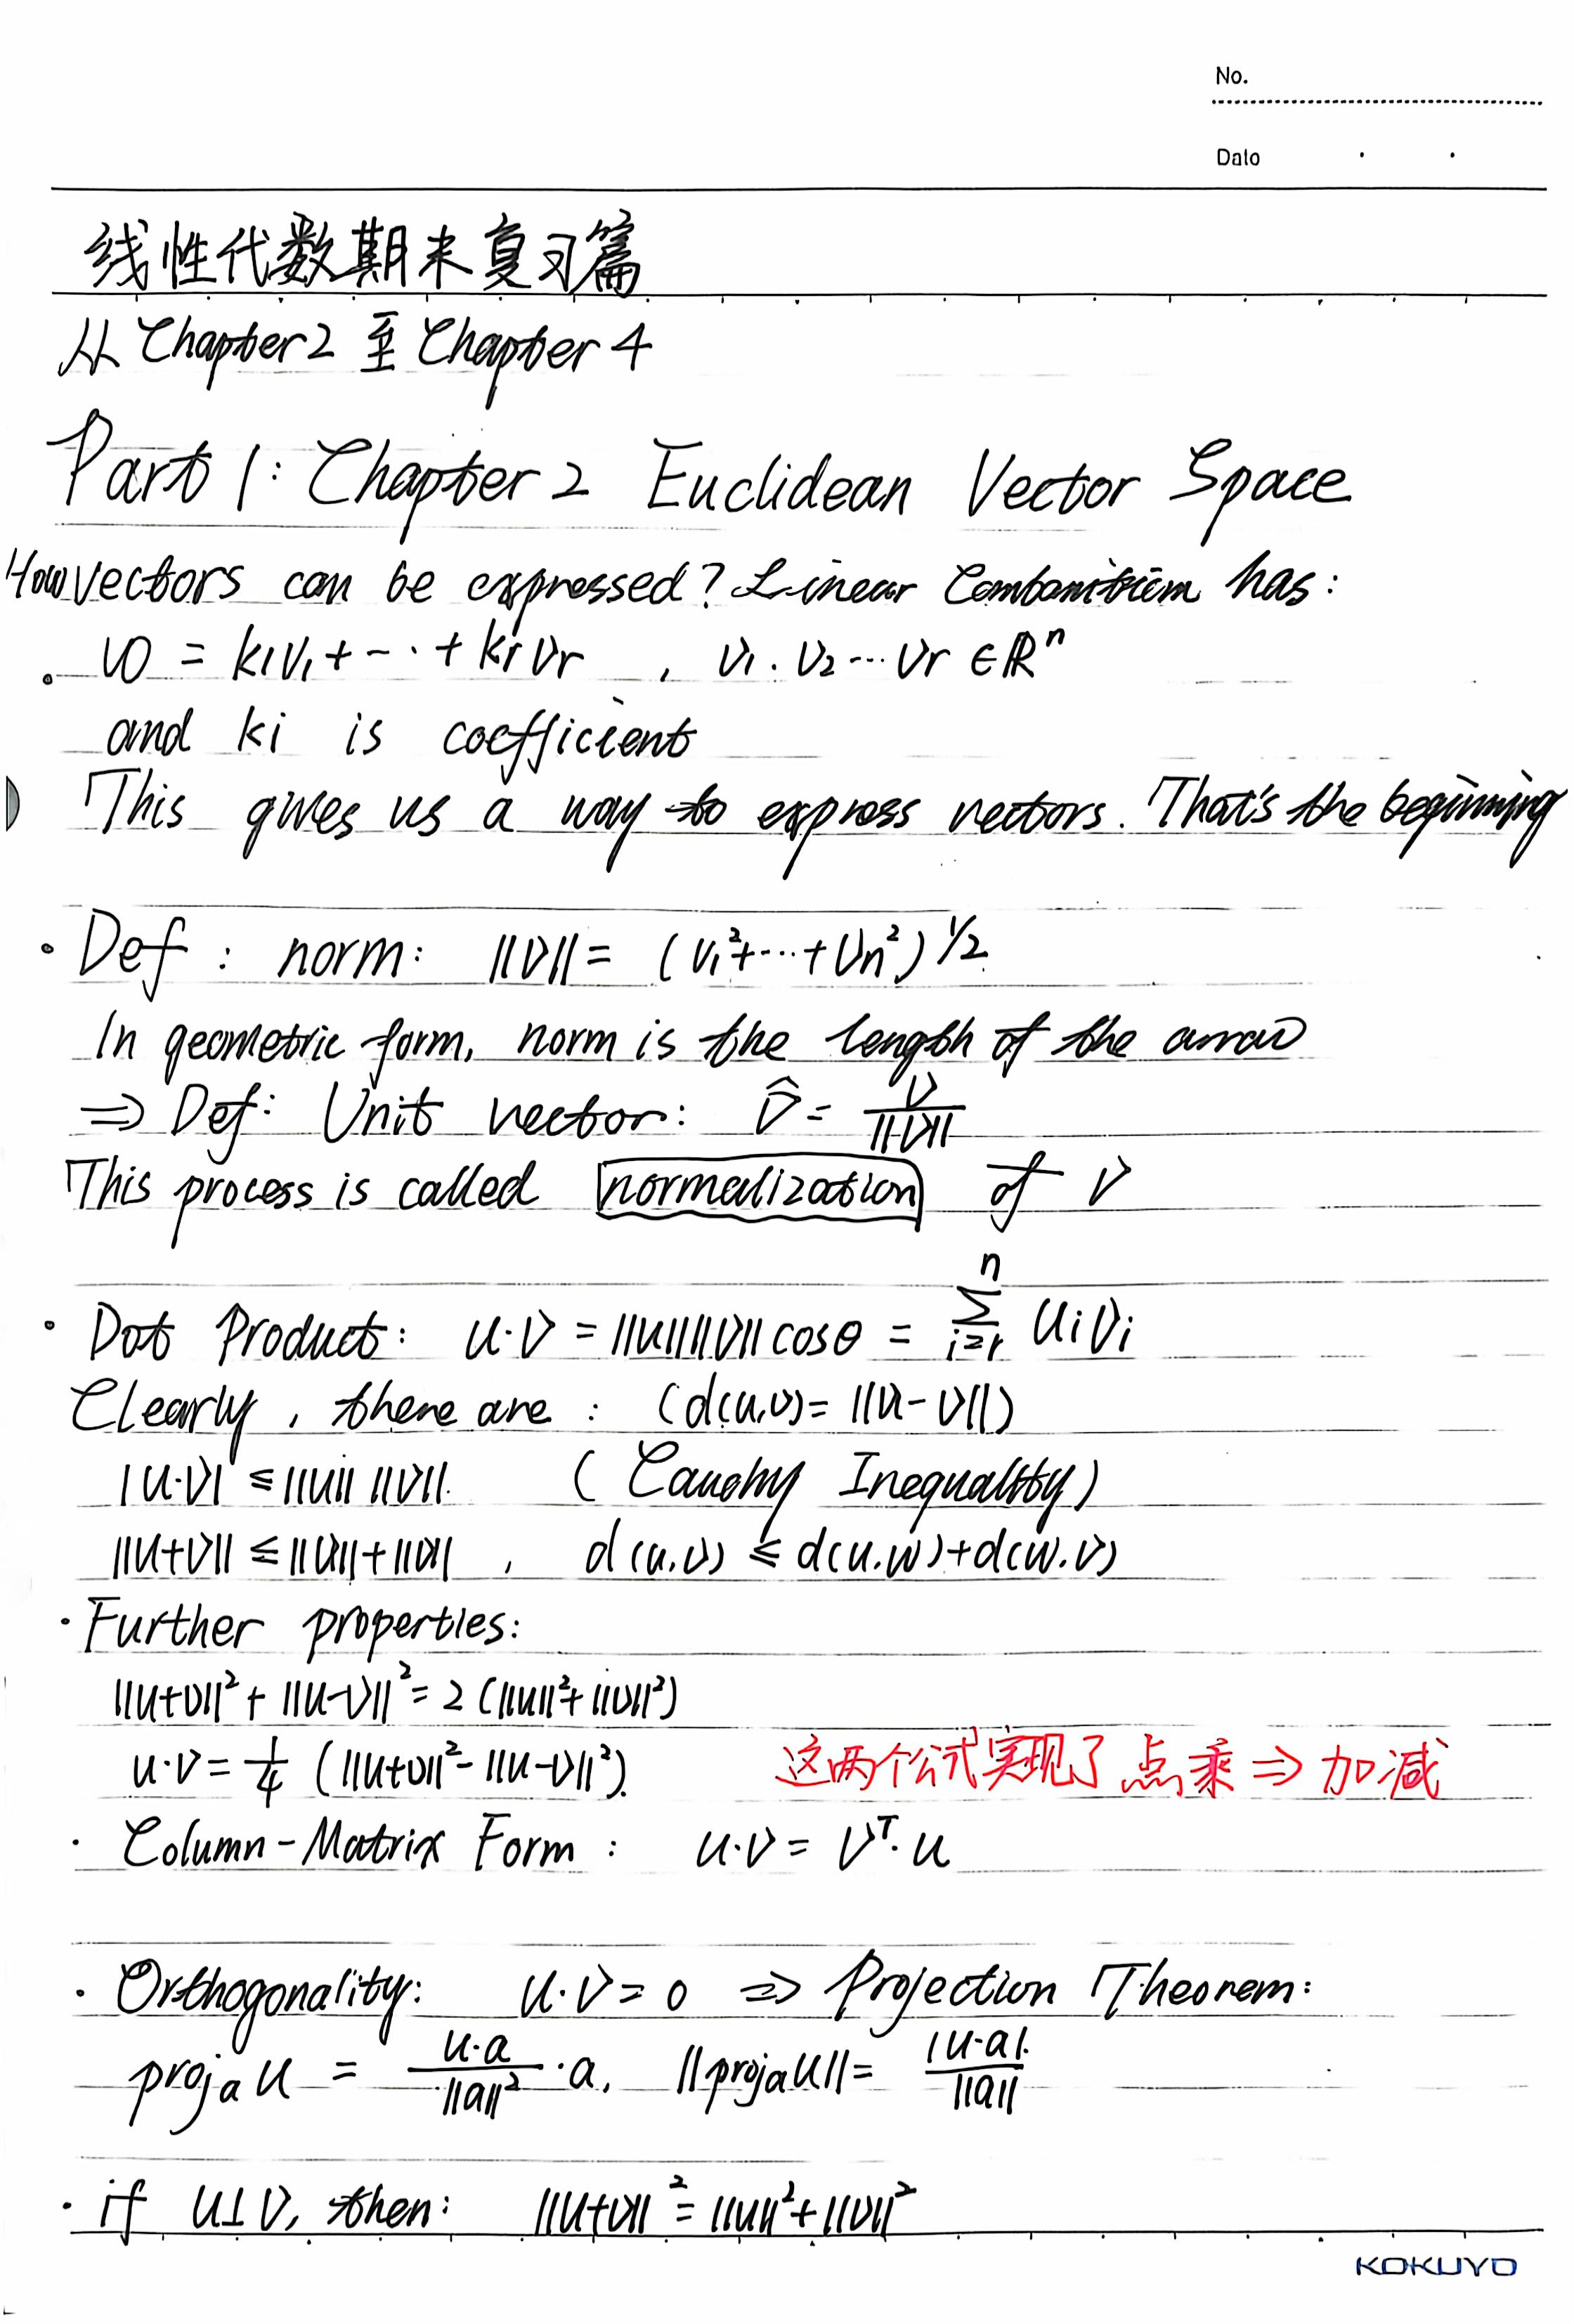 No.
Date
线性代数期末复习篇
从 Chapter 2 至 Chapter 4
Part 1: Chapter 2 Euclidean Vector Space
How vectors can be expressed? Linear has:
w = k₁v₁+⋯+krvr , v₁. v₂⋯vr ∈ ℝⁿ
and ki is coefficient
This gives us a way to express vectors. That's the beginning
· Def : norm: ||v|| = (v₁²+⋯+vn²)^1/2
In geometric form, norm is the length of the arrow
⇒ Def: Unit vector: v̂ = v/||v||
This process is called normalization of v
· Dot Product: u·v = ||u|| ||v|| cosθ = ∑_{i=1}^{n} uᵢvᵢ
Clearly, there are : (d(u,v) = ||u-v||)
|u·v| ≤ ||u|| ||v||. (Cauchy Inequality)
||u+v|| ≤ ||u||+||v|| , d(u,v) ≤ d(u,w)+d(w,v)
· Further properties:
||u+v||² + ||u-v||² = 2 (||u||²+||v||²)
u·v = 1/4 (||u+v||² - ||u-v||²). 这两个公式实现了 点乘 ⇒ 加减
· Column-Matrix Form : u·v = vᵀ·u
· Orthogonality: u·v = 0 ⇒ Projection Theorem:
projₐu = u·a/||a||² ·a, ||projₐu|| = |u·a|/||a||
· if u⊥v, then: ||u+v||² = ||u||²+||v||²
KOKUYO